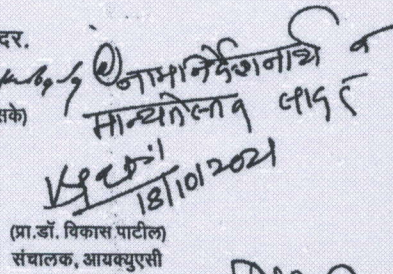 दर.
नामनिर्देशनार्थ व
सके)
मान्यतेस्तव सादर
18/10/2021
(प्रा.डॉ. विकास पाटील)
संचालक, आयक्युएसी